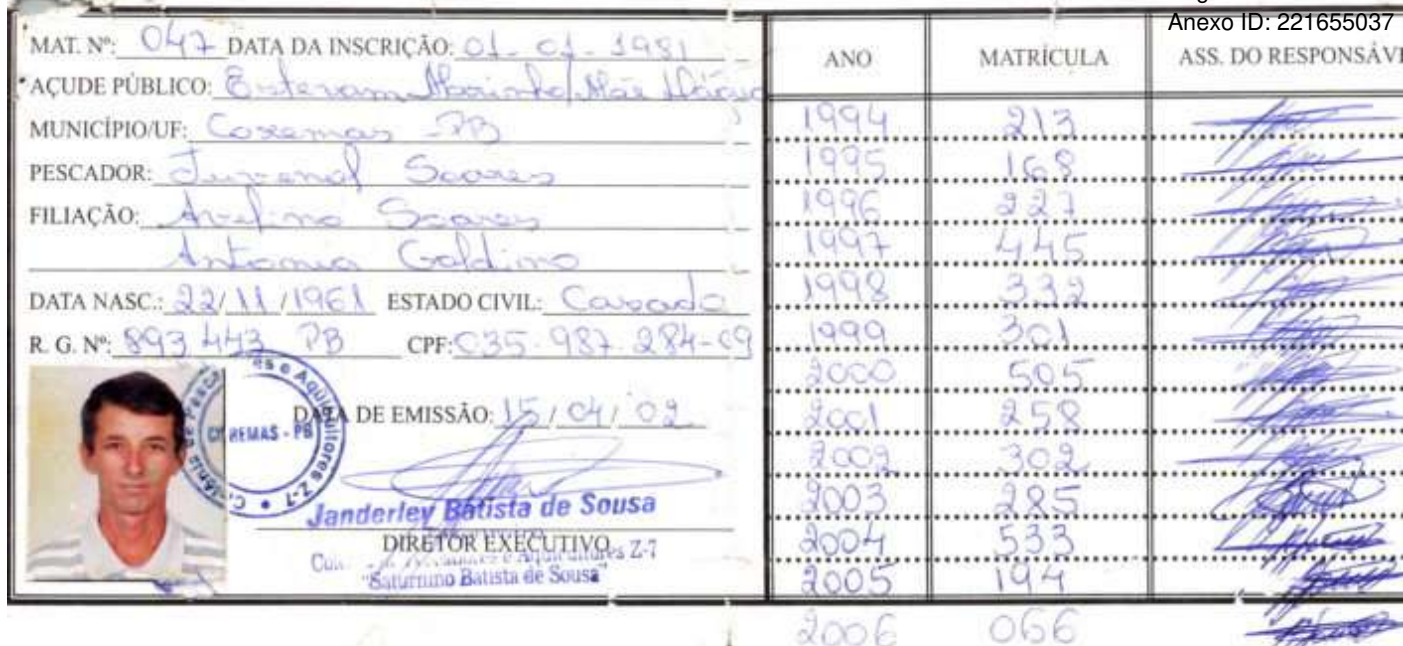 Anexo ID: 221655037
MAT. Nº: 047 DATA DA INSCRIÇÃO: 01-01-1981
AÇUDE PÚBLICO: Estevam Marinho/Mãe D'água
MUNICÍPIO/UF: Coremas-PB
PESCADOR: Juvenal Soares
FILIAÇÃO: Avelino Soares
Antonia Galdino
DATA NASC.: 22/11/1961 ESTADO CIVIL: Casado
R. G. Nº: 893 443 PB CPF: 035-987-284-09
DATA DE EMISSÃO: 15/04/02
COREMAS - PB
Colônia de Pescadores e Aquicultores Z-7
Janderley Batista de Sousa
DIRETOR EXECUTIVO
Aquicultores Z-7
"Saturnino Batista de Sousa"
ANO MATRÍCULA ASS. DO RESPONSÁVE
1994 213
1995 168
1996 227
1997 445
1998 332
1999 301
2000 505
2001 258
2002 302
2003 285
2004 533
2005 194
2006 066